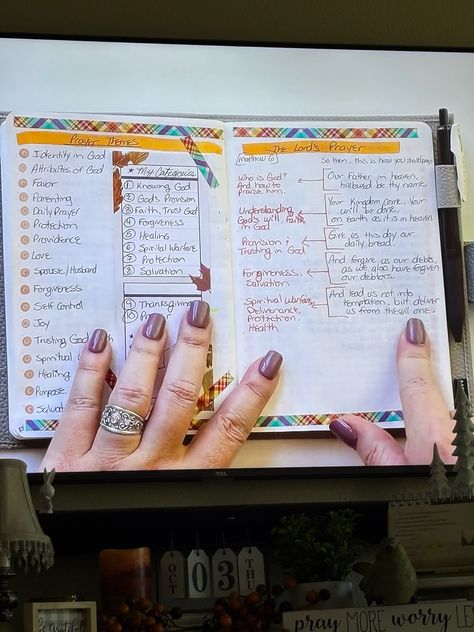 Prayer Themes
Identity in God
Attributes of God
Favor
Parenting
Daily Prayer
Protection
Providence
Love
Spouse/Husband
Forgiveness
Self Control
Joy
Trusting God
Spiritual
Healing
Purpose
★ My Categories
1 Knowing God
2 God's Provision
3 Faith, Trust God
4 Forgiveness
5 Healing
6 Spiritual Warfare
7 Protection
8 Salvation
9 Thanksgiving
10
The Lord's Prayer
Matthew 6
So then, this is how you should pray:
Who is God?
And how to
praise him.
Our Father in heaven,
hallowed be thy name.
Understanding
God's will, Faith
in God
Your Kingdom come, Your
will be done
on earth as it is in heaven.
Provision &
Trusting in God
Give us this day our
daily bread.
Forgiveness,
Salvation
And forgive us our debts,
as we also have forgiven
our debtors.
Spiritual Warfare,
Deliverance,
Protection,
Health
And lead us not into
temptation, but deliver
us from the evil one.
TCL
OCT
0
3
THU
pray MORE worry LE